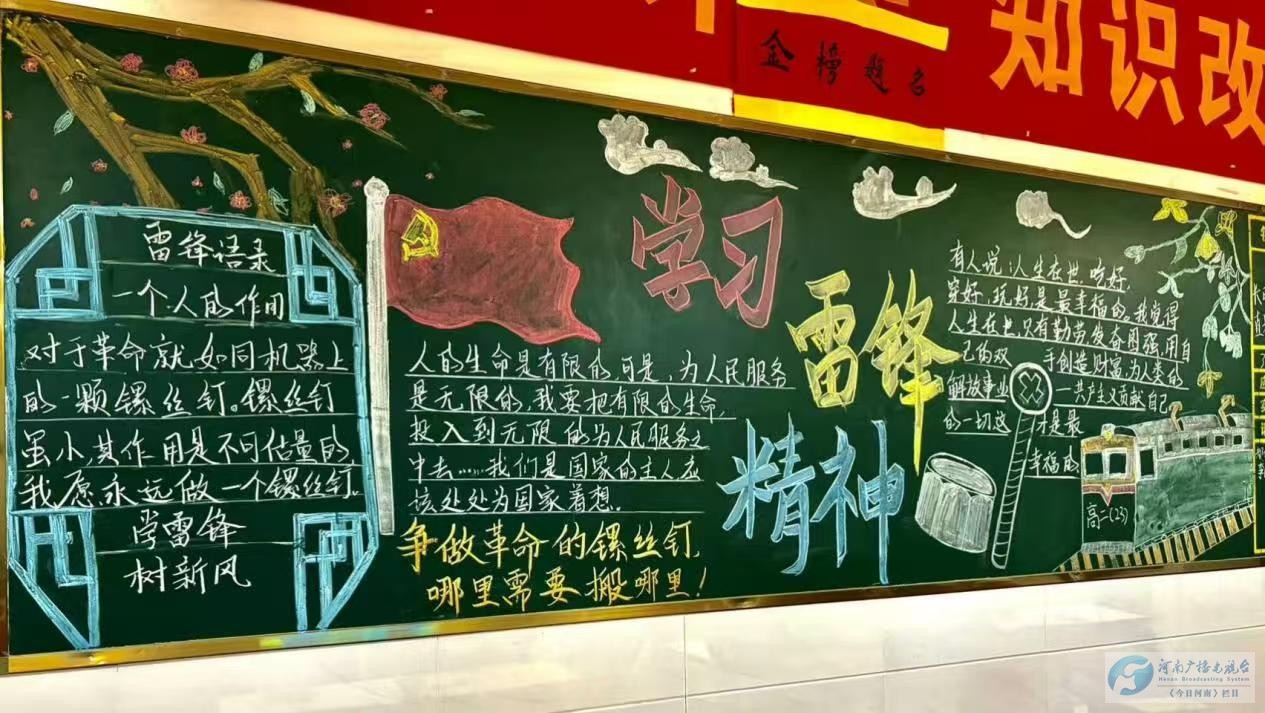 知识改
金榜题名
雷锋语录
一个人的作间
对于革命就如同机器上
的一颗镙丝钉。镙丝钉
虽小,其作用是不可估量的
我愿永远做一个镙丝钉。
学雷锋
树新风
人的生命是有限的,可是,为人民服务
是无限的,我要把有限的生命,
投入到无限的为人民服务之
中去……我们是国家的主人应
该处处为国家着想。
争做革命的镙丝钉,
哪里需要搬哪里!
学习
雷锋
精神
有人说:人生在世,吃好,
穿好,玩好,是最幸福的。我觉得
人生在世,只有勤劳,发奋图强,用自
己的双 手创造财富,为人类的
解放事业 一共产主义贡献自己
的一切这 才是最
幸福的
高二(23)
河南广播电视台
Henan Broadcasting System
《今日河南》栏目